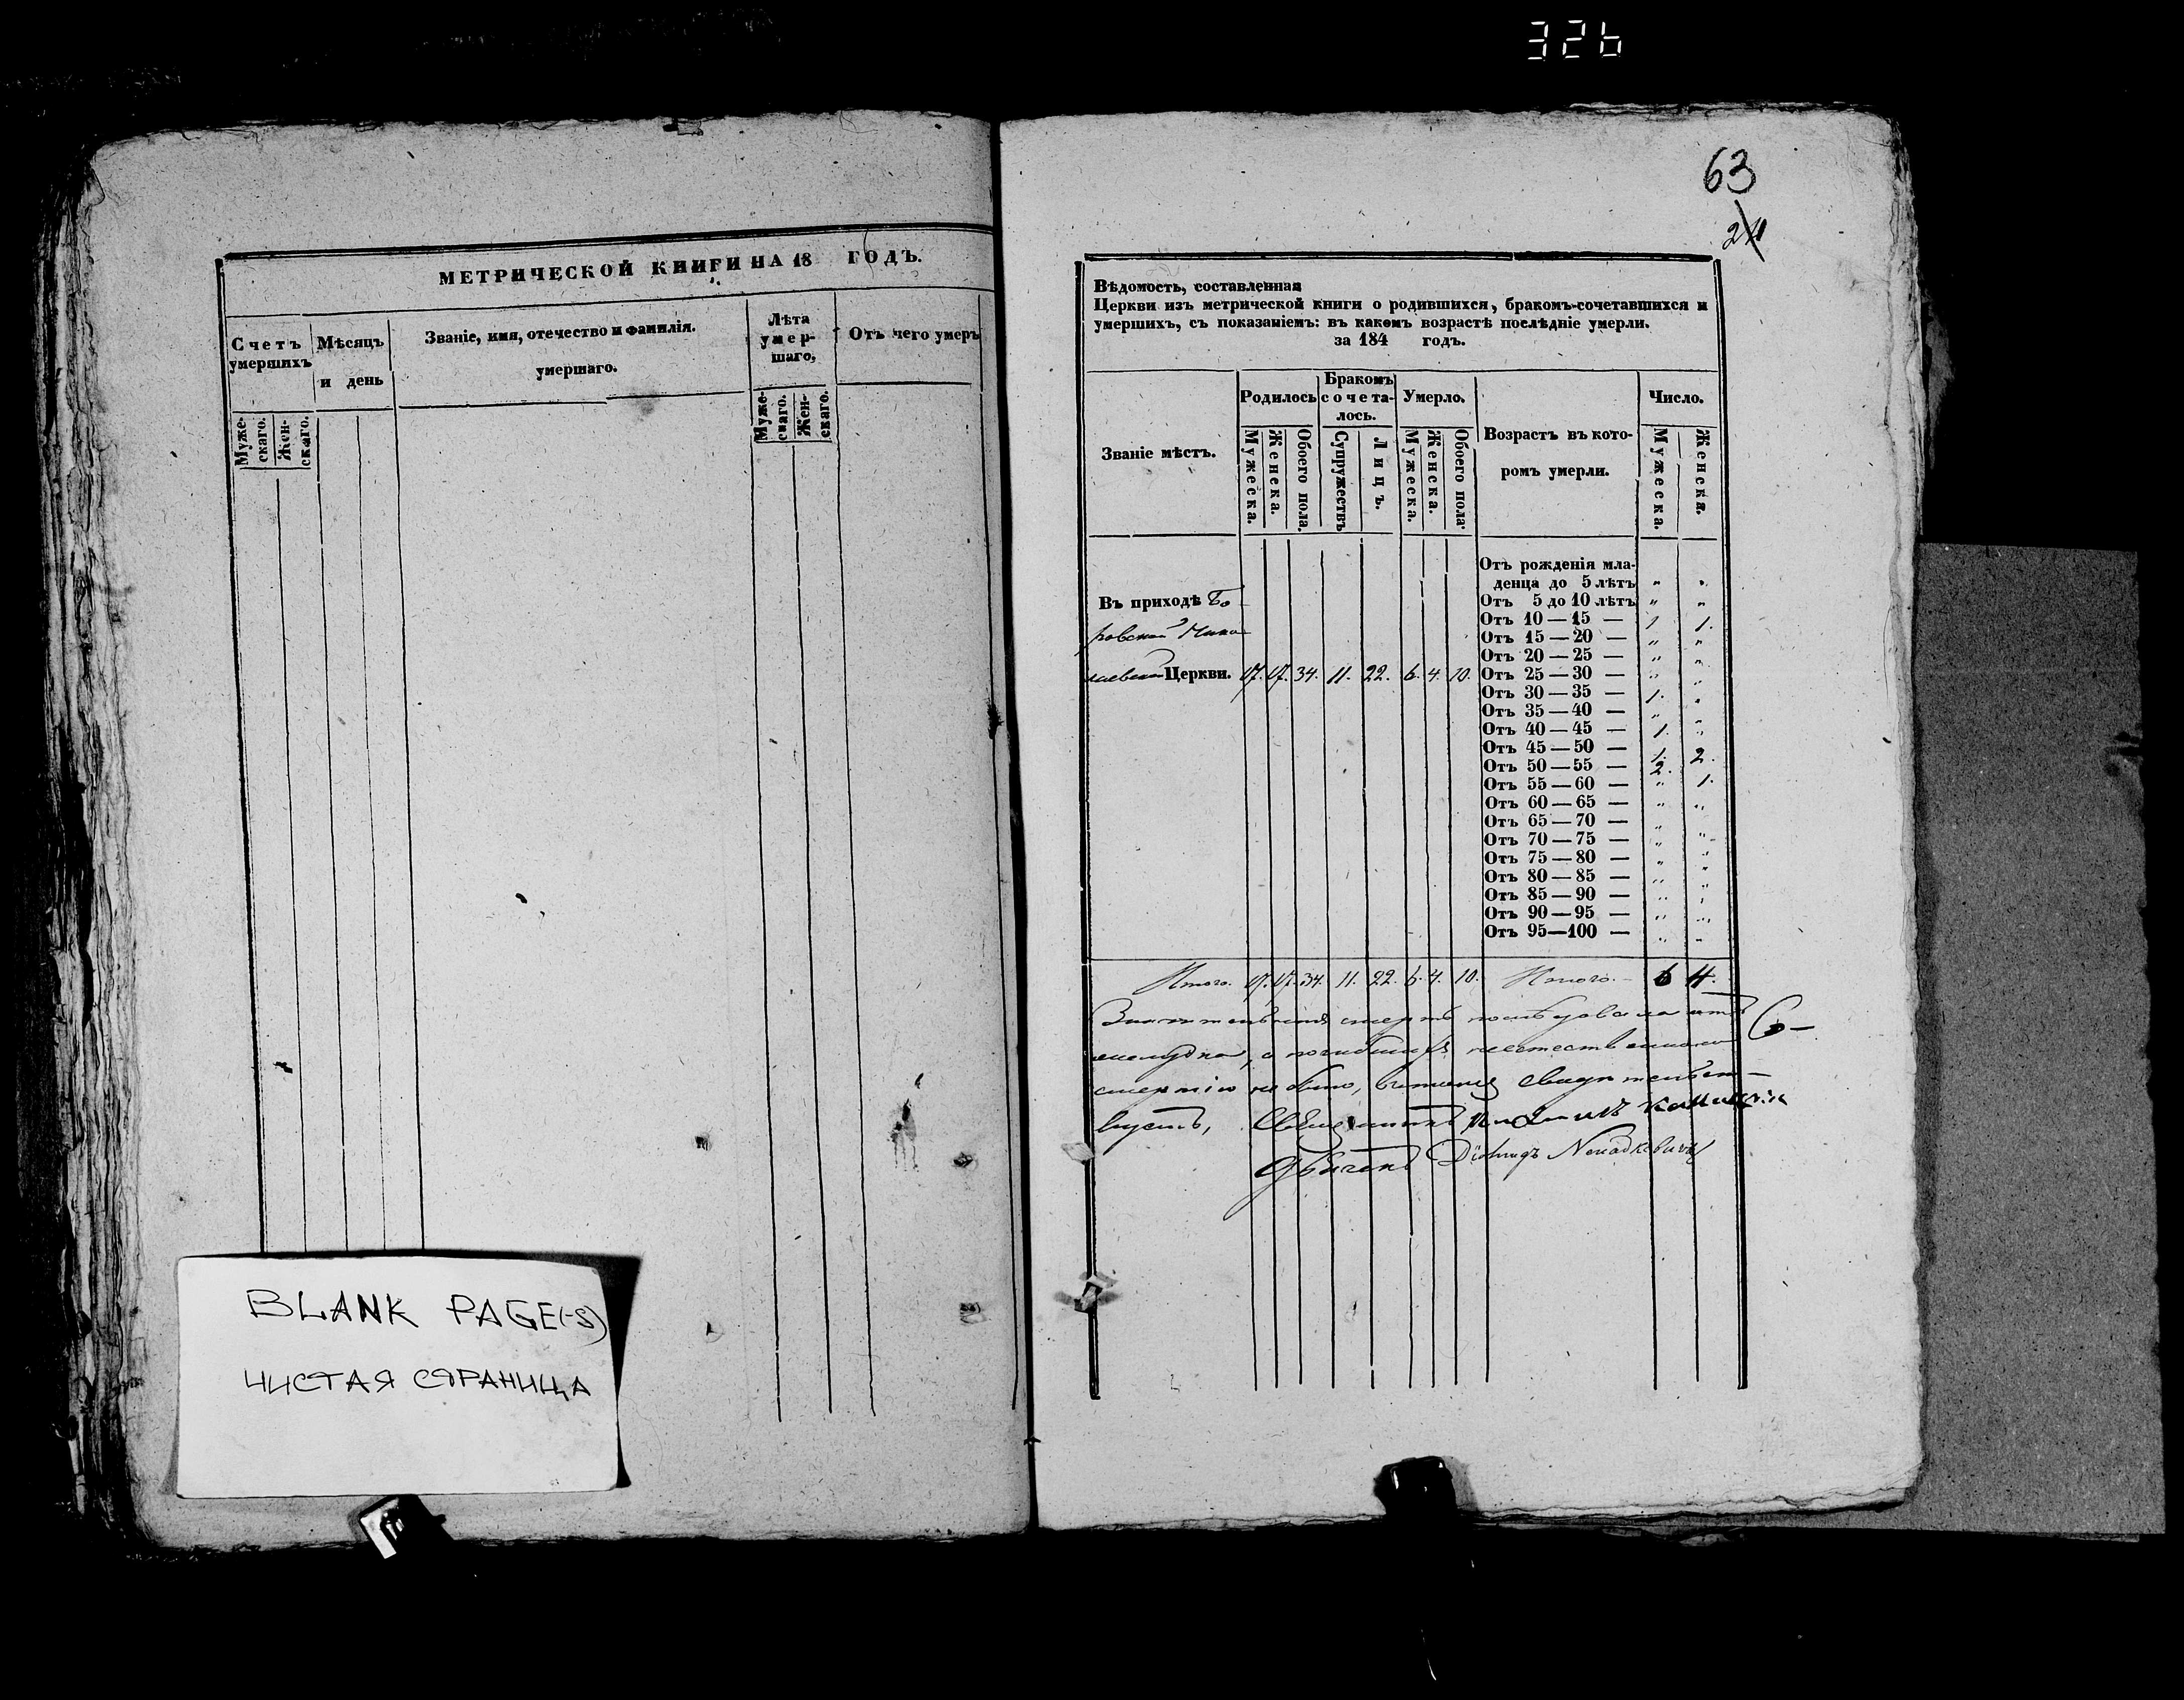 326
МЕТРИЧЕСКОЙ КНИГИ НА 18 ГОДЪ.
Счетъ умершихъ
Мѣсяцъ и день
Званіе, имя, отечество и фамилія.
умершаго.
Лѣта умер-
шаго,
Отъ чего умеръ
Муже-
скаго.
Жен-
скаго.
Муже-
скаго.
Жен-
скаго.
BLANK PAGE(-S)
ЧИСТАЯ СТРАНИЦА
63
Вѣдомость, составленная
Церкви изъ метрической книги о родившихся, бракомъ-сочетавшихся и
умершихъ, съ показаніемъ: въ какомъ возрастѣ послѣдніе умерли.
за 184 годъ.
Званіе мѣстъ.
Родилось
Бракомъ
сочета-
лось.
Умерло.
Возрастъ въ кото-
ромъ умерли.
Число.
Мужеска.
Женска.
Обоего пола.
Супружествъ
Лицъ.
Мужеска.
Женска.
Обоего пола.
Мужеска.
Женска.
Въ приходѣ Бо
ровской Нико
лаевской Церкви. 17. 17. 34. 11. 22. 6. 4. 10.
Отъ рожденія мла-
денца до 5 лѣтъ " "
Отъ 5 до 10 лѣтъ " "
Отъ 10 — 15 — 1 1.
Отъ 15 — 20 — " "
Отъ 20 — 25 — " "
Отъ 25 — 30 — " "
Отъ 30 — 35 — 1. "
Отъ 35 — 40 — " "
Отъ 40 — 45 — 1. "
Отъ 45 — 50 — 1. 2.
Отъ 50 — 55 — 2. 1.
Отъ 55 — 60 — " "
Отъ 60 — 65 — " "
Отъ 65 — 70 — " "
Отъ 70 — 75 — " "
Отъ 75 — 80 — " "
Отъ 80 — 85 — " "
Отъ 85 — 90 — " "
Отъ 90 — 95 — " "
Отъ 95—100 — " "
Итого. 17. 17. 34. 11. 22. 6. 4. 10. Итого. 6 4.
смерть последовала отъ
желудка, а погибшихъ неестественною
смертію не было, въ томъ свидетельст-
вуетъ, Священникъ
Дьячекъ